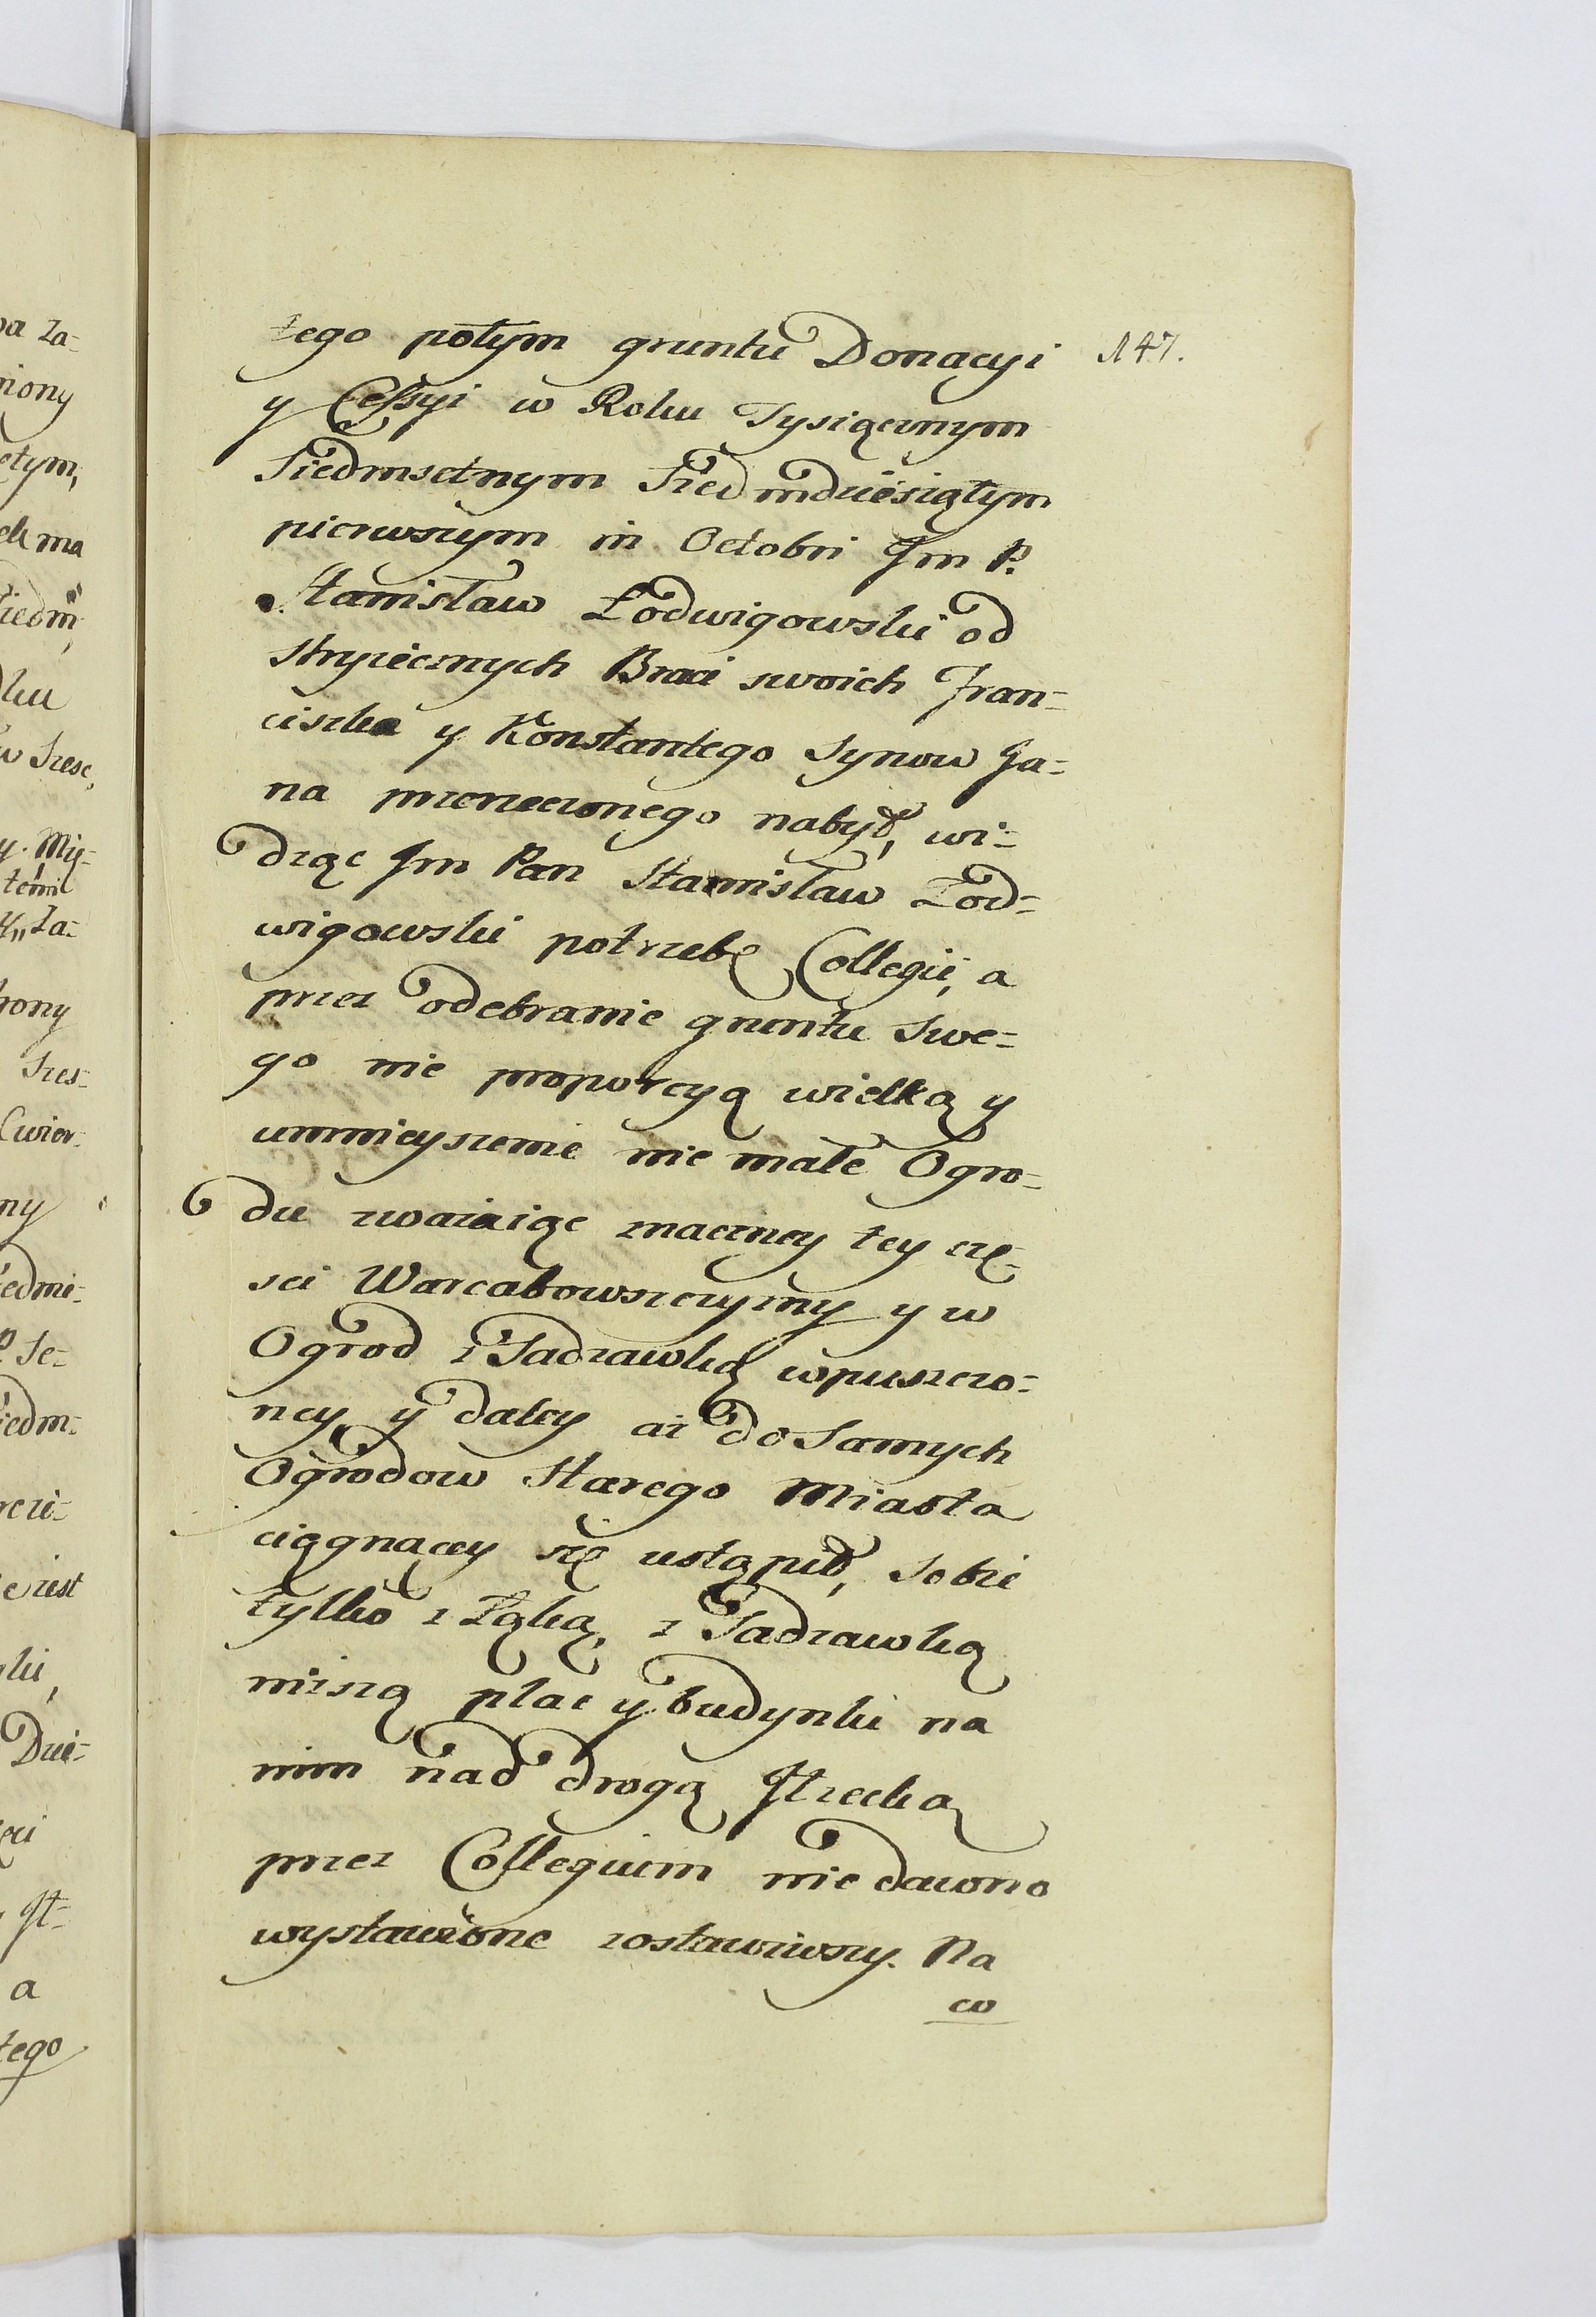 tego potym gruntu Donacyi 147.
y Cessyi w Roku Tysiącznym
Siedmsetnym Siedmdziesiątym
pierwszym in Octobri Jm P.
Stanisław Łodwigowski od
stryiecznych Braci swoich Fran=
ciszka y Konstantego Synow Ja=
na przerzeczonego nabył, wi=
dząc Jm Pan Stanisław Łod=
wigowski potrzebę Collegii, a
przez odebranie gruntu Swe=
go nie proporcyą wielką y
umnieyszenie nie małe Ogro=
du zwaiaiąc znaczney tey czę=
sci Warcabowszczyzny y w
Ogrod z Sadzawką wpuszczo=
ney y daley aż do Samych
Ogrodow Starego Miasta
ciągnącey się ustąpił, Sobie
tylko z Łąką, z Sadzawką
niższą plac y budynki na
nim nad drogą Jłzecką
przez Collegium nie dawno
wystawione zostawiwszy. Na
co